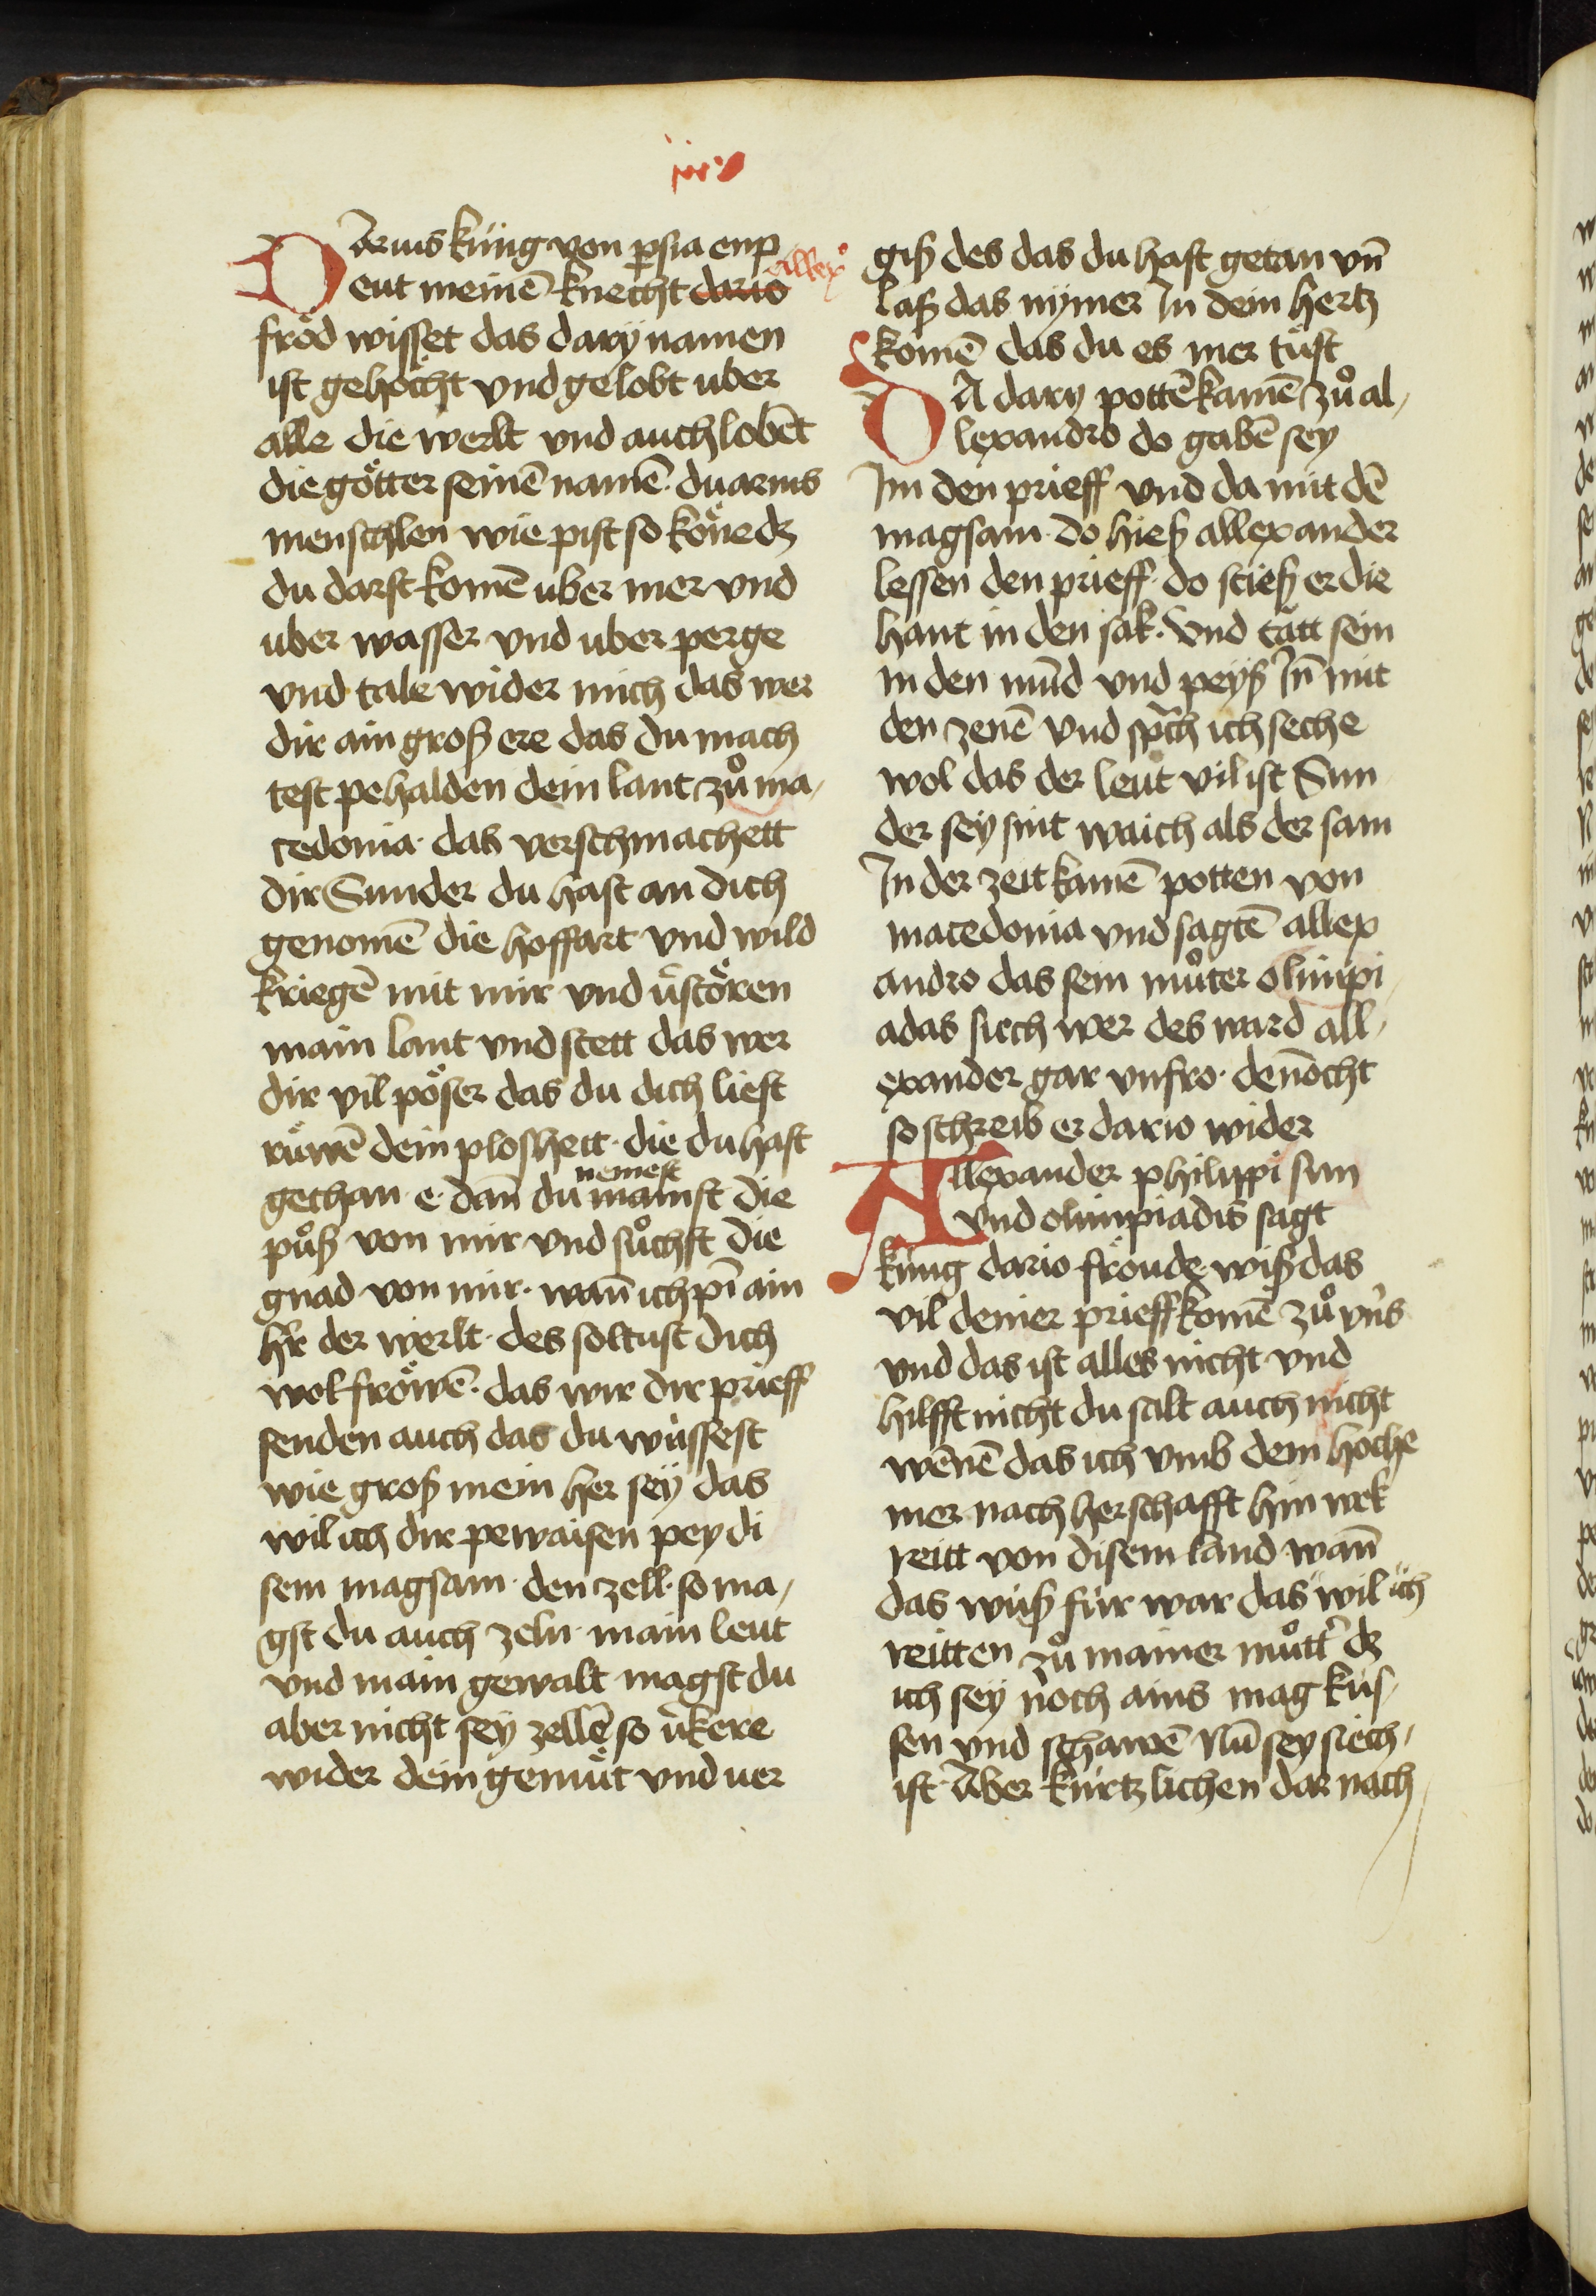 Darius küng von ꝑsia enp
eut meinē knecht dario Allexº
fröd wisset das dary namen
ist gehöcht vnd gelobt uber
alle die werlt vnd auch lobēt
die götter seinē namē · du arms
menschlen wie pist so köne dz
du darst komē uber mer vnd
uber wasser vnd uber perge
vnd tale wider mich das wer
dir ain groß ere das du mach
test pehalden dein lant zů ma/
cedonia · das verschmachett
dir Sunder du hast an dich
genomē die hoffart vnd wild
kriegē mit mir vnd ùstören
main lant vnd stett das wer
dir vil pöser das du dich liest
rüwē dein plosheit · die du hast
gethan · e · dañ du mainst nemest die
pů̊ß von mir vnd sůchst die
gnad von mir · wañ ich pī ain
hr̄ der werlt · des soltust dich
wol fröwē · das wir dir prieff
senden auch das du wüssest
wie groß mein her sey das
wil ich dir pewaisen pey di
sem magsam · den zell · so ma/
gst du auch zeln · main leut
vnd main gewalt magst du
aber nicht sey zellē so v̓kere
wider dein gemüt vnd uer
giß des das du hast getan vn̄
laß das nymer In dein hertz
komē das du es mer tüst
DA dary pottē kamē zů al/
lexandro do gabē sey
Im den prieff vnd da mit dē
magsam · do hieß allexander
lessen den prieff · do stieß er die
hant in den sak · Vnd tätt sein
in den mūd vnd peyß In̄ mit
den zenē vnd sp̄ch ich seche
wol das der leut vil ist Sun
der sey sint waich als der sam
In der zeit kamē potten von
macedonia vnd sagtē allex
andro das sein můter olimpi/
adas siech wer des ward all/
exander gar vnfro · den̄ocht
so schreib er dario wider
Allexander philippi sun
vnd olimpiadis sagt
küng dario fröude wiß das
vil deiner prieff komē zů vns
vnd das ist alles nicht vnd
hilfft nicht du salt auch nicht
wēnē das ich vmb dein hoche
mer nach herschafft hin wek
reitt von disem land wañ
das wiß für war das wil ich
reitten zů mainer můtt̓ dz
ich sey noch ains mag küs/
sen vnd schawē Nū sey siech/
ist · Aber kürtzlichen dar nach